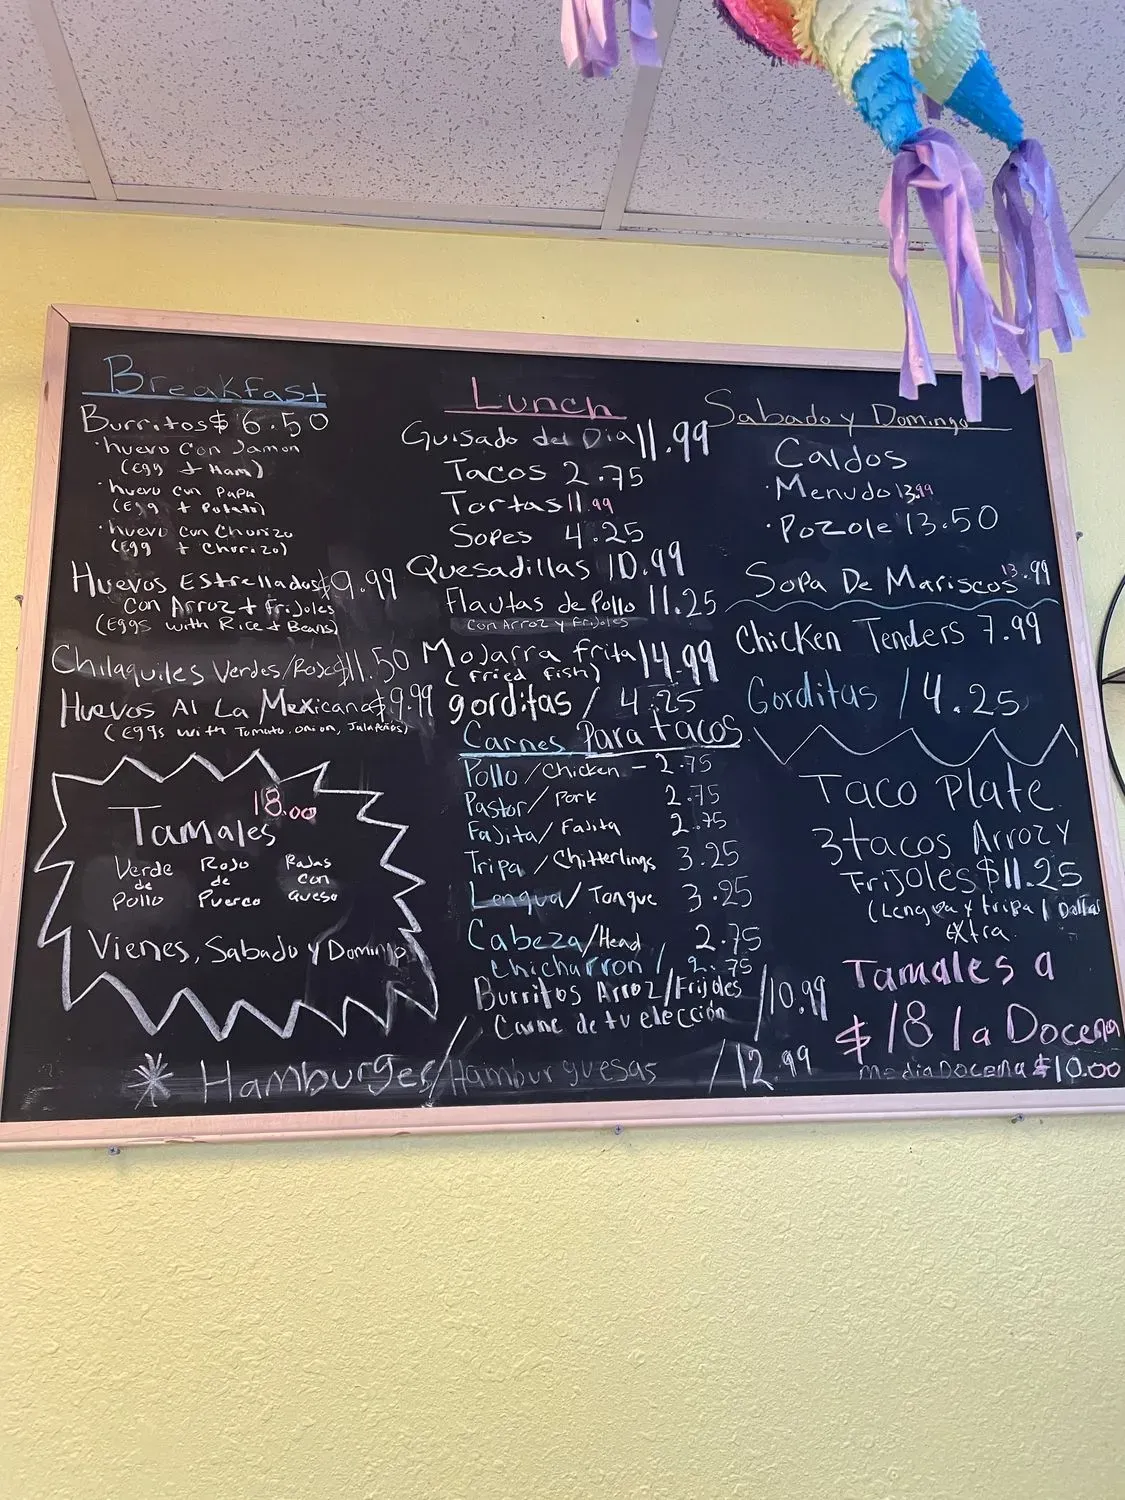 Breakfast
Burritos $6.50
• huevo con Jamon
(Egg + Ham)
• huevo con papa
(Egg + Potato)
• huevo con Chorizo
(Egg + Chorizo)
Huevos Estrellados $9.99
con Arroz + Frijoles
(Eggs with Rice + Beans)
Chilaquiles Verdes/Rojo $11.50
Huevos Al La Mexicana $9.99
(Eggs with Tomato, onion, Jalapeños)
18.00
Tamales
Verde de Pollo
Rojo de Puerco
Rajas con queso
Vienes, Sabado y Domingo
Lunch
Guisado del Dia 11.99
Tacos 2.75
Tortas 11.99
Sopes 4.25
Quesadillas 10.99
Flautas de Pollo 11.25
con Arroz y Frijoles
Mojarra frita 14.99
(fried fish)
gorditas / 4.25
Carnes Para tacos
Pollo / Chicken - 2.75
Pastor / Pork 2.75
Fajita / Fajita 2.75
Tripa / Chitterlings 3.25
Lengua / Tongue 3.25
Cabeza / Head 2.75
Chicharron / 2.75
Burritos Arroz / Frijoles / 10.99
Carne de tu elección
* Hamburgers / Hamburguesas / 12.99
Sabado y Domingo
Caldos
• Menudo 13.99
• Pozole 13.50
Sopa De Mariscos 13.99
Chicken Tenders 7.99
Gorditas / 4.25
Taco Plate
3 tacos Arroz y
Frijoles $11.25
(Lengua y tripa 1 Dollar
extra
Tamales a
$18 la Docena
media Docena $10.00